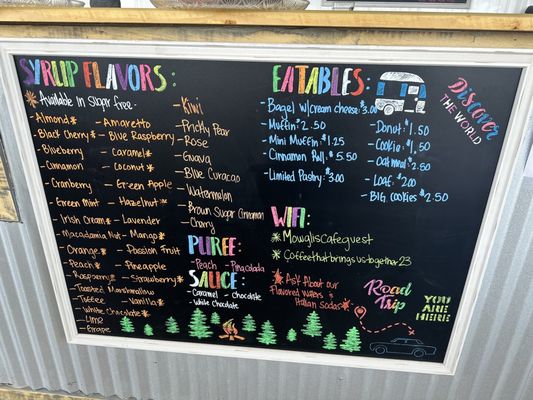 SYRUP FLAVORS:
* Available in Sugar free
Almond *
Black Cherry *
Blueberry
Cinnamon
Cranberry
Green Mint
Irish Cream *
Macadamia Nut
Orange *
Peach *
Raspberry *
Toasted Marshmallow
Toffee
White Chocolate
Lime
Grape
- Amaretto
- Blue Raspberry
- Caramel *
- Coconut *
- Green Apple
- Hazelnut *
- Lavender
- Mango *
- Passion Fruit
- Pineapple
- Strawberry *
- Vanilla *
- Kiwi
- Prickly Pear
- Rose
- Guava
- Blue Curacao
- Watermelon
- Brown Sugar Cinnamon
- Cherry
PUREE:
- Peach - Pina colada
SAUCE:
- Caramel - Chocolate
- White Chocolate
EATABLES:
- Bagel w/cream cheese: $3.00
- Muffin: 2.50
- Mini Muffin: $1.25
- Cinnamon Roll: $5.50
- Limited Pastry: $3.00
- Donut: $1.50
- Cookie: $1.50
- Oatmeal: $2.50
- Loaf: $2.00
- BIG Cookies $2.50
WIFI:
* Mowgliscafeguest
* Coffeethatbringsustogether23
* Ask About our
Flavored Waters &
Italian Sodas *
Discover
THE WORLD
Road Trip
YOU
ARE
HERE